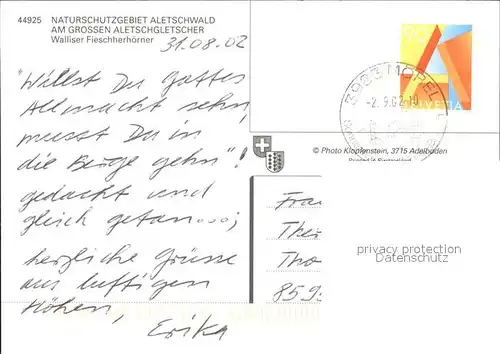 44925 NATURSCHUTZGEBIET ALETSCHWALD
AM GROSSEN ALETSCHGLETSCHER
Walliser Fiescherhörner
31.08.02
"Willst Du Gottes
Allmacht sehn,
musst Du in
die Berge gehn"!
gedacht und
gleich getan....;
herzliche Grüsse
aus luftigen
Höhen,
Erika
3983 MÖREL
-2.9.02-10
HELVETIA
© Photo Klopfenstein, 3715 Adelboden
Fran
Ther
Tho
859
privacy protection
Datenschutz